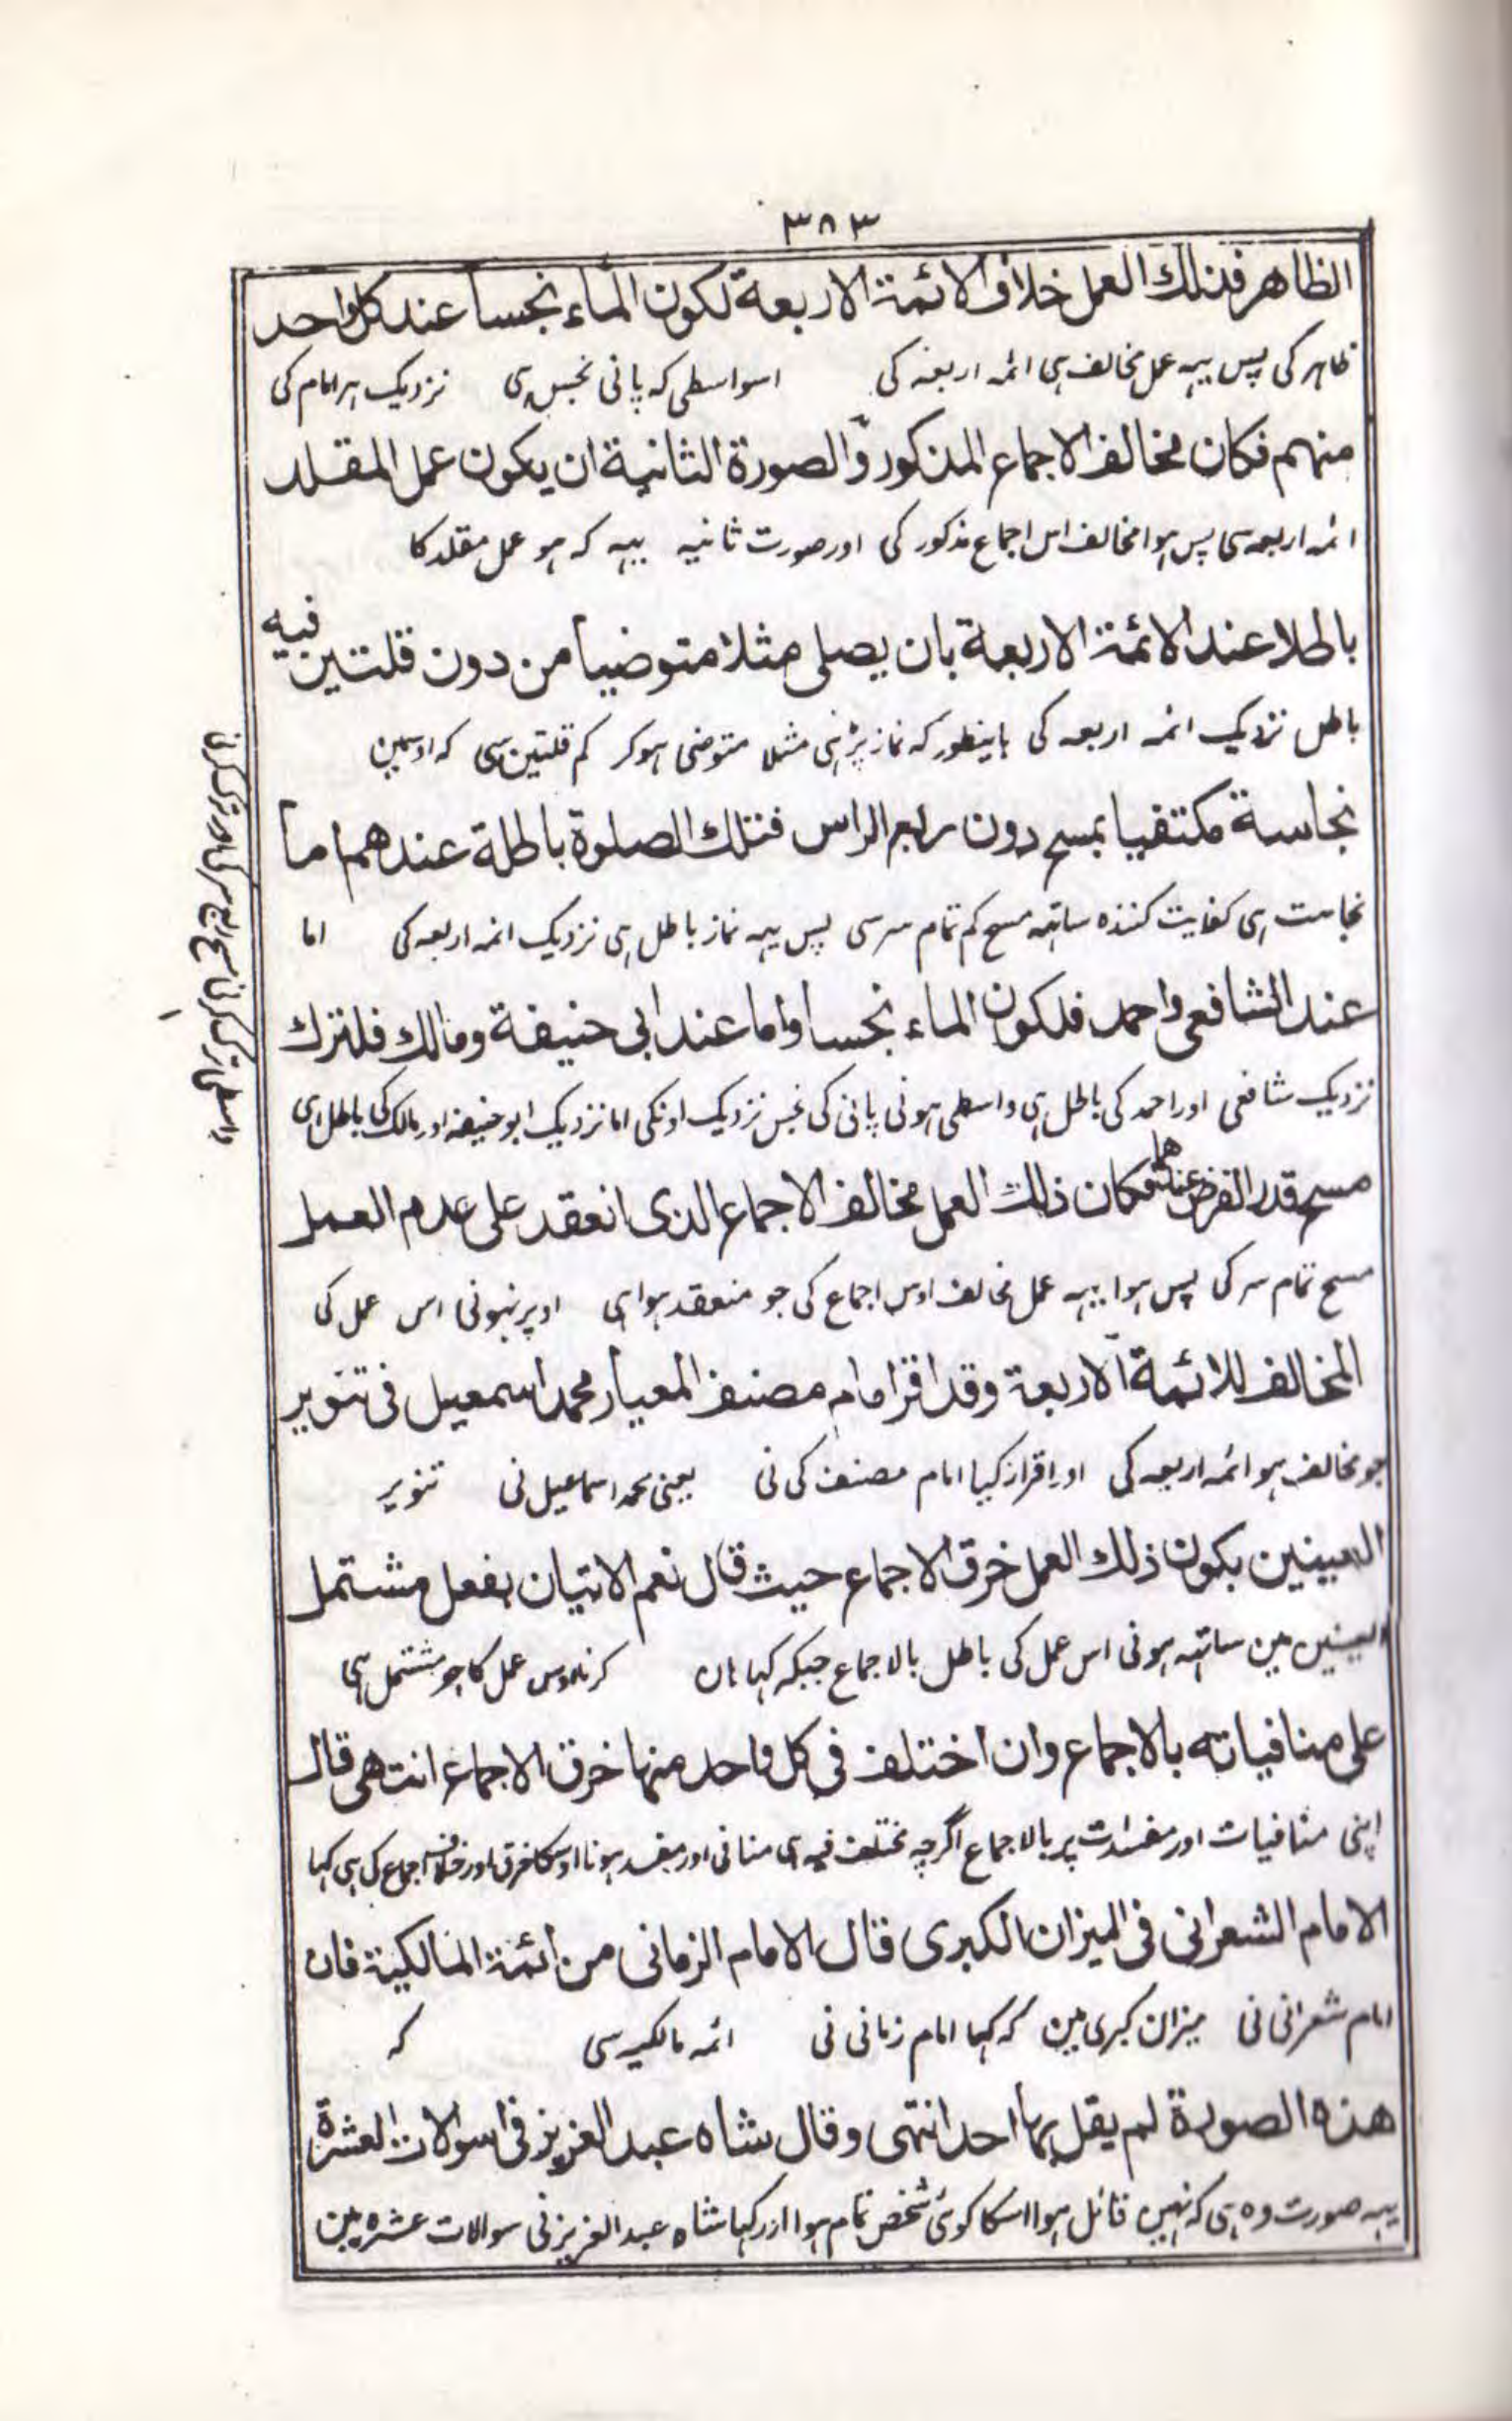 ٣٨٣
الظاهر فذلك العمل خلاف الائمة الاربعة لكون الماء نجسا عند كل واحد
ظاہر کی پس یہہ عمل مخالف ہی ائمہ اربعہ کی اسواسطی کہ پانی نجس ہی نزدیک ہر امام کی
منهم فكان مخالف الاجماع المذكور والصورة الثانية ان يكون عمل المقلد
ائمہ اربعہ سی پس ہوا مخالف اس اجماع مذکور کی اور صورت ثانیہ یہہ کہ ہو عمل مقلد کا
باطلا عند الائمة الاربعة بان يصلى مثلا متوضيا من دون قلتين فيه
باطل نزدیک ائمہ اربعہ کی باینطور کہ نماز پڑہی مثلا متوضی ہوکر کم قلتین سی کہ اوسمین
نجاسة مكتفيا بمسح دون ربع الراس فتلك الصلوة باطلة عندهم اما
نجاست ہی کفایت کنندہ ساتہہ مسح کم تمام سر سی پس یہہ نماز باطل ہی نزدیک ائمہ اربعہ کی اما
عند الشافعى واحمد فلكون الماء نجسا واما عند ابى حنيفة ومالك فلترك
نزدیک شافعی اور احمد کی باطل ہی واسطی ہونی پانی کی نجس نزدیک اونکی اما نزدیک ابو حنیفہ اور مالک کی باطل ہی
مسح قدر الفرض عندهما فكان ذلك العمل مخالف الاجماع الذى انعقد على عدم العمل
مسح تمام سر کی پس ہوا یہہ عمل مخالف اوس اجماع کی جو منعقد ہوا ہی اوپر نہونی اس عمل کی
المخالف للائمة الاربعة وقد اقر امام مصنف المعيار محمد اسمعيل فى تنوير
جو مخالف ہو ائمہ اربعہ کی اور اقرار کیا امام مصنف کی نی یعنی محمد اسماعیل نی تنویر
العينين بكون ذلك العمل خرق الاجماع حيث قال نعم الاتيان بفعل مشتمل
العینین مین ساتہہ ہونی اس عمل کی باطل بالاجماع جبکہ کہا ہان کرنا اوس عمل کا جو مشتمل ہی
على منافياته بالاجماع وان اختلف فى كل واحد منها خرق الاجماع انتهى قال
اپنی منافیات اور مفسدات پر بالاجماع اگرچہ مختلف فیہ ہی منافی اور مفسد ہونا اوسکا خرق اور خلاف اجماع کی ہی کہا
الامام الشعرانى فى الميزان الكبرى قال الامام الزمانى من ائمة المالكية فان
امام شعرانی نی میزان کبری مین کہ کہا امام زمانی نی ائمہ مالکیہ سی کہ
هذه الصورة لم يقل بها احد انتهى وقال شاه عبد العزيز فى اسوالات العشرة
یہہ صورت وہ ہی کہ نہین قائل ہوا اسکا کوئی شخص تمام ہوا اور کہا شاہ عبد العزیز نی سوالات عشرہ مین